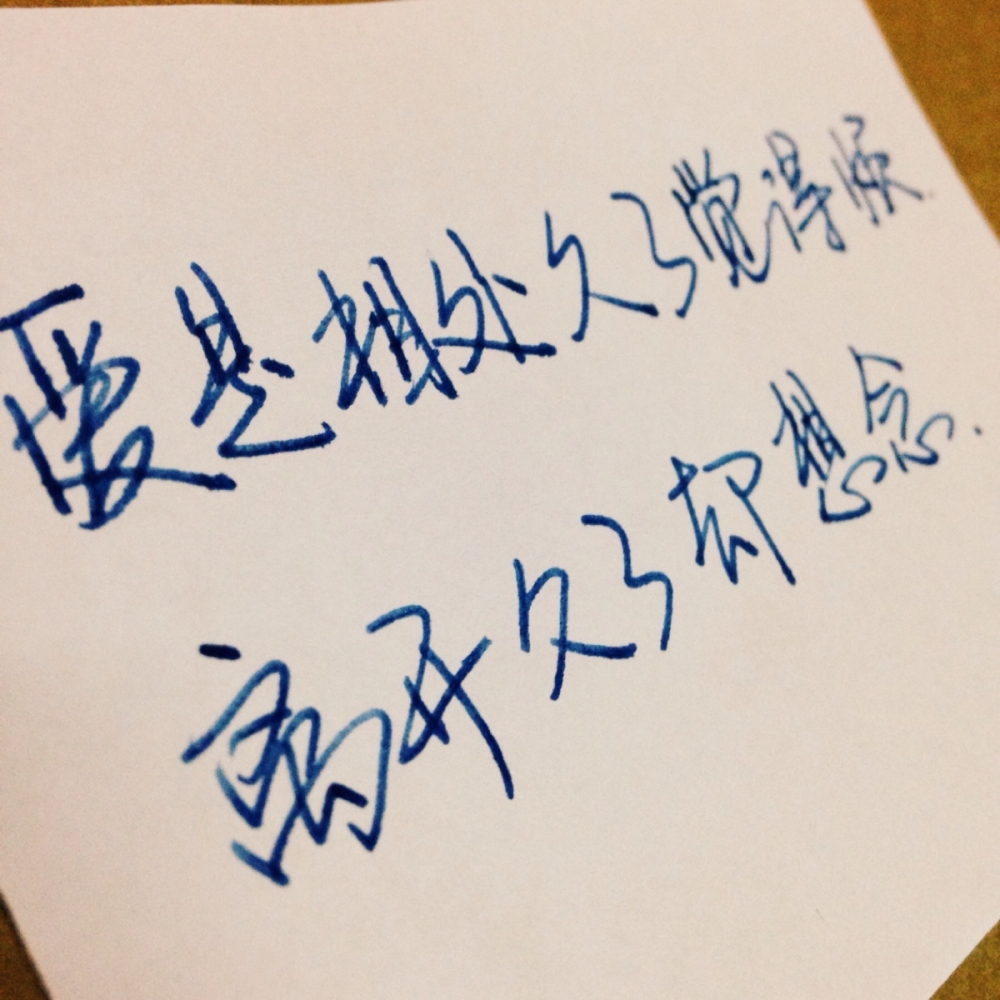 爱是相处久了觉得烦.
离开久了却想念.